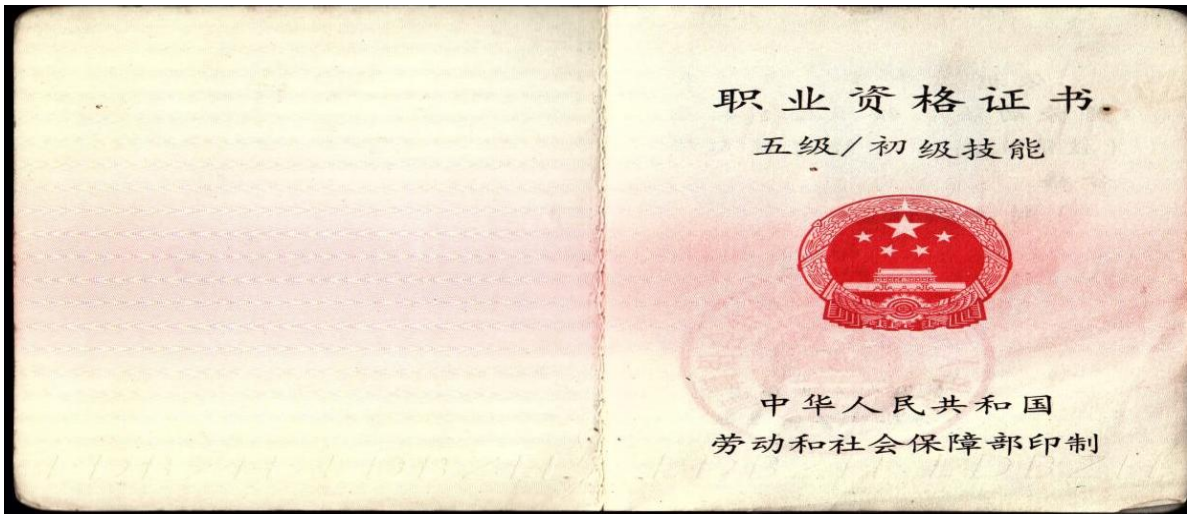 职业资格证书
五级/初级技能
中华人民共和国
劳动和社会保障部印制